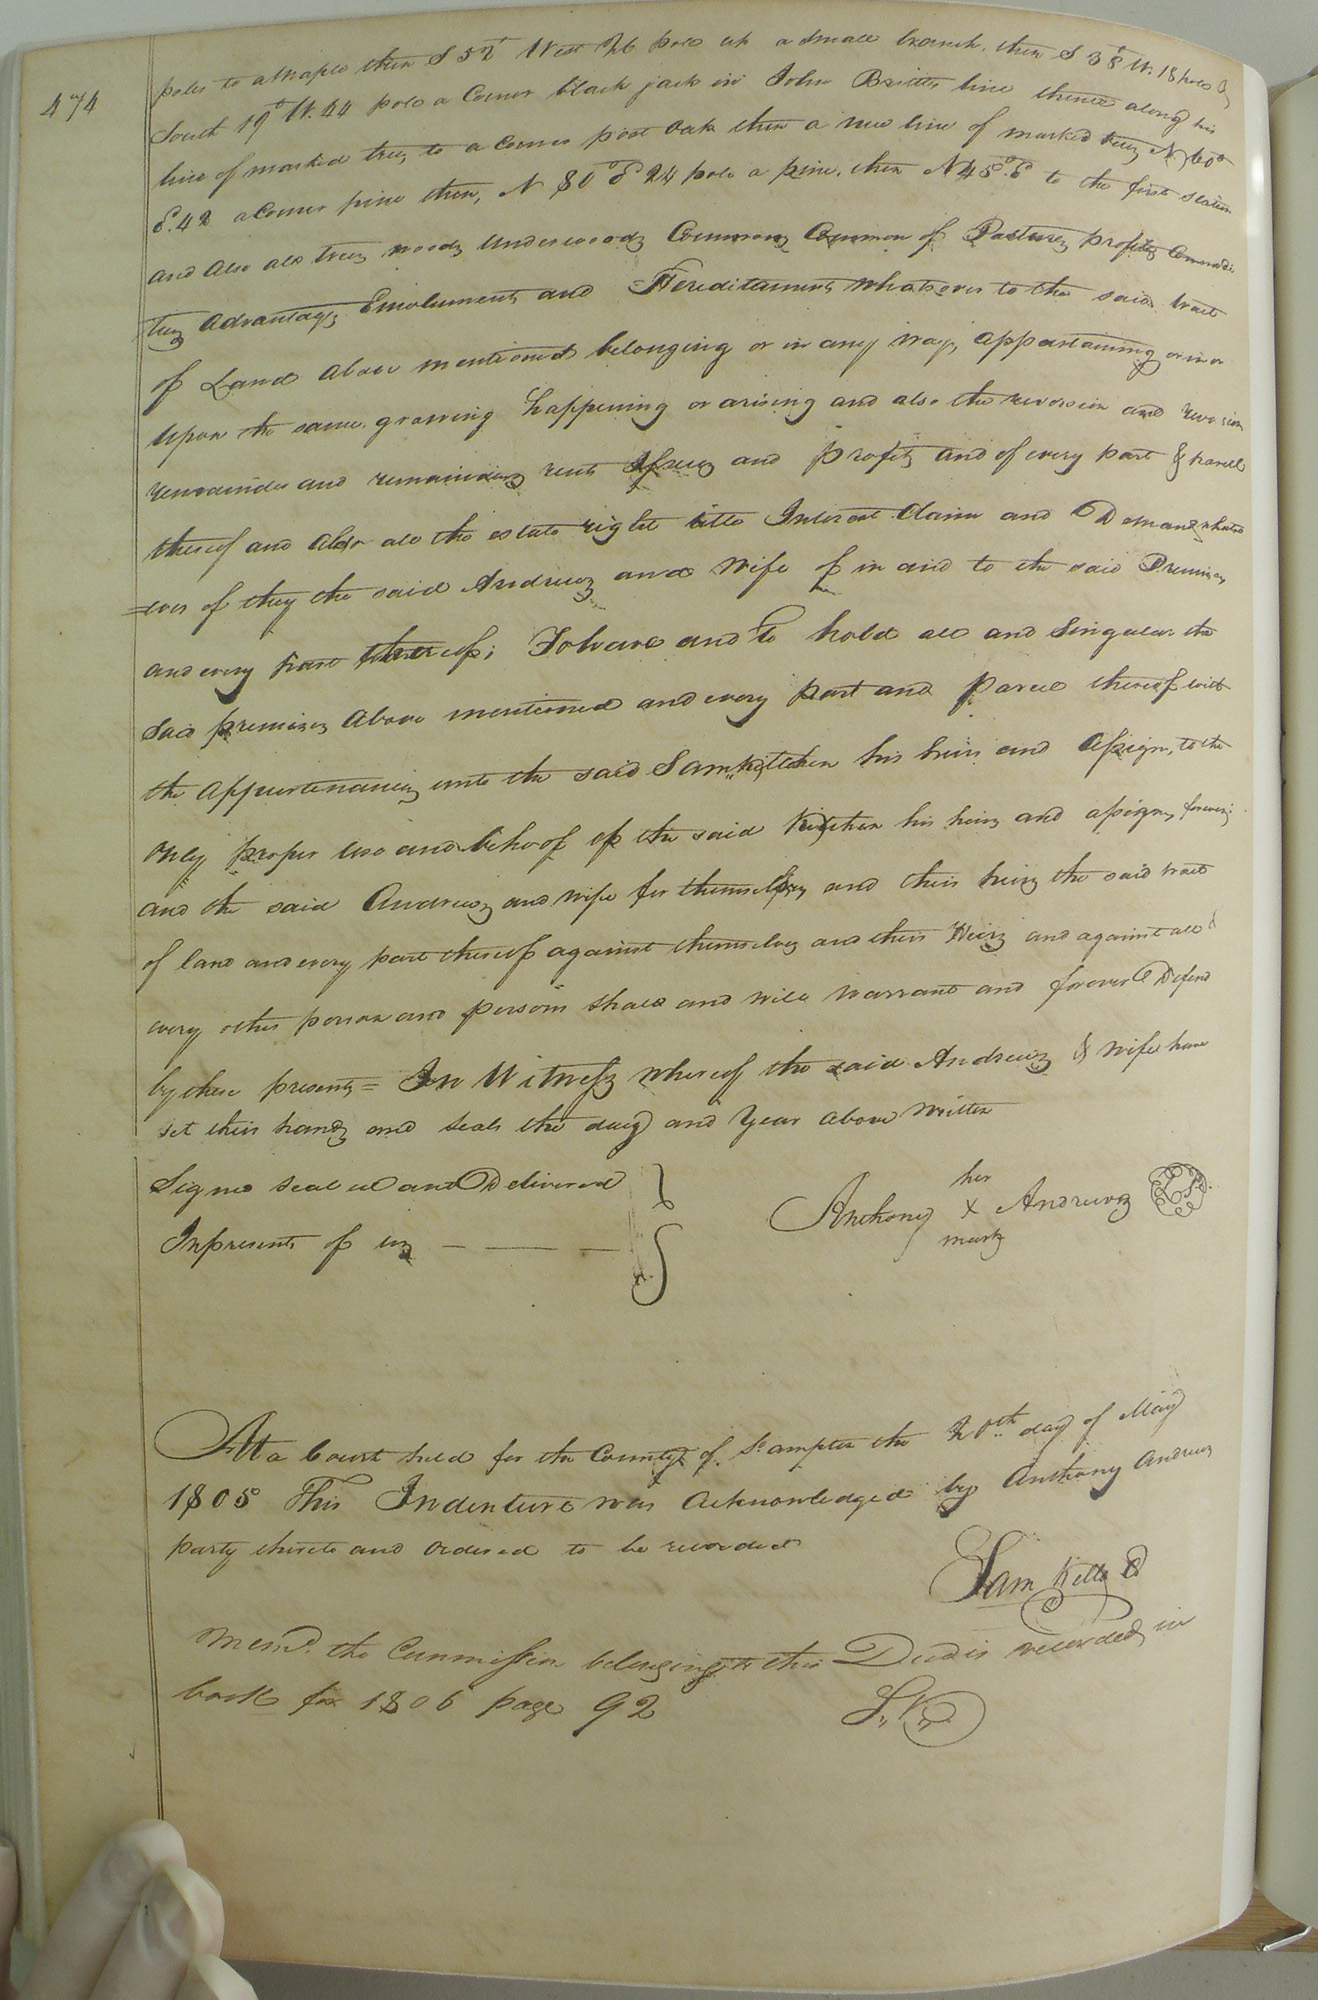 474
poles to a Maple then S 52° West 26 pole up a small branch, then S 38 W. 18 poles &
South 19° W. 44 pole a Corner black jack in John Britts line thence along his
line of marked trees to a Corner post oak then a new line of marked trees N 60°
E. 42 a Corner pine then, N 80° E 24 pole a pine, then N 45° E to the first station
and also all trees woods Underwoods Commons Common of Pastures profits Commodi
ties Advantages Emoluments and Hereditaments whatsoever to the said tract
of Land above mentioned belonging or in any ways appertaining or in or
upon the same, growing happening or arising and also the reversion and reversions
remainder and remainders rents Issues and profits and of every part & parcell
thereof and also all the estate right title Interest Claim and Demand whatso
=ever of they the said Andrews and Wife of in and to the said Premises
and every part thereof; To have and To hold all and Singular the
said premises above mentioned and every part and parcel thereof with
the appurtenances unto the said Sam. Kitchen his heirs and assigns, to the
only proper use and behoof of the said Kitchen his heirs and assigns forever;
and the said Andrews and wife for themselves and their heirs the said tract
of land and every part thereof against themselves and their Heirs and against all &
every other person and persons shall and will warrant and forever Defend
by these presents = In Witness whereof the said Andrews & wife have
set their hands and seals the day and Year above Written
Signed sealed and Delivered
In presents of us
his
Anthony X Andrews LS.
mark
At a Court held for the County of So ampton the 20th. day of May
1805 This Indenture was acknowledged by Anthony Andrews
party thereto and ordered to be recorded
Sam Kello C
Memd. the Commission belonging to this Deed is recorded in
book for 1806 page 92
S. K.